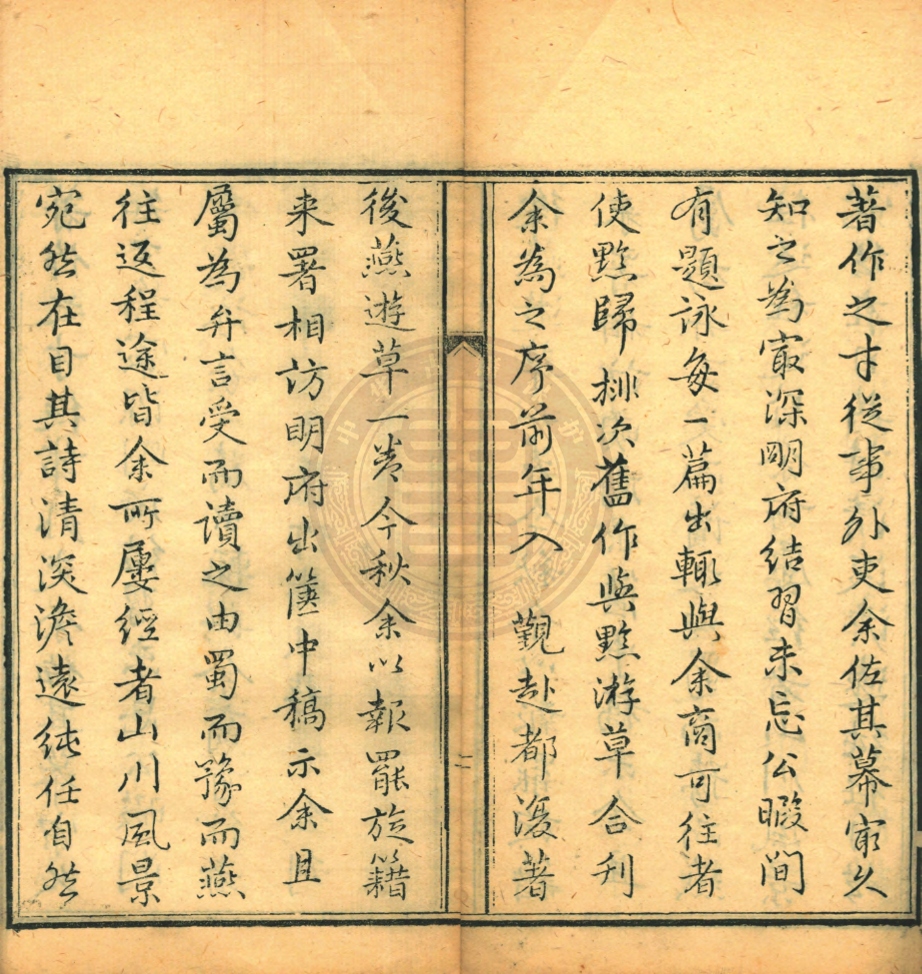 著作之才從事外吏余佐其幕㝡久
知之為㝡深明府結習未忘公暇間
有題詠每一篇出輒與余商可往者
使黔歸排次舊作與黔游草合刋
余為之序前年入 覲赴都復著
二
後燕遊草一卷今秋余以報罷旋籍
来署相訪明府出篋中稿示余且
屬為弁言受而讀之由蜀而豫而燕
往返程途皆余所屢經者山川風景
宛然在目其詩清淡澹遠純任自然